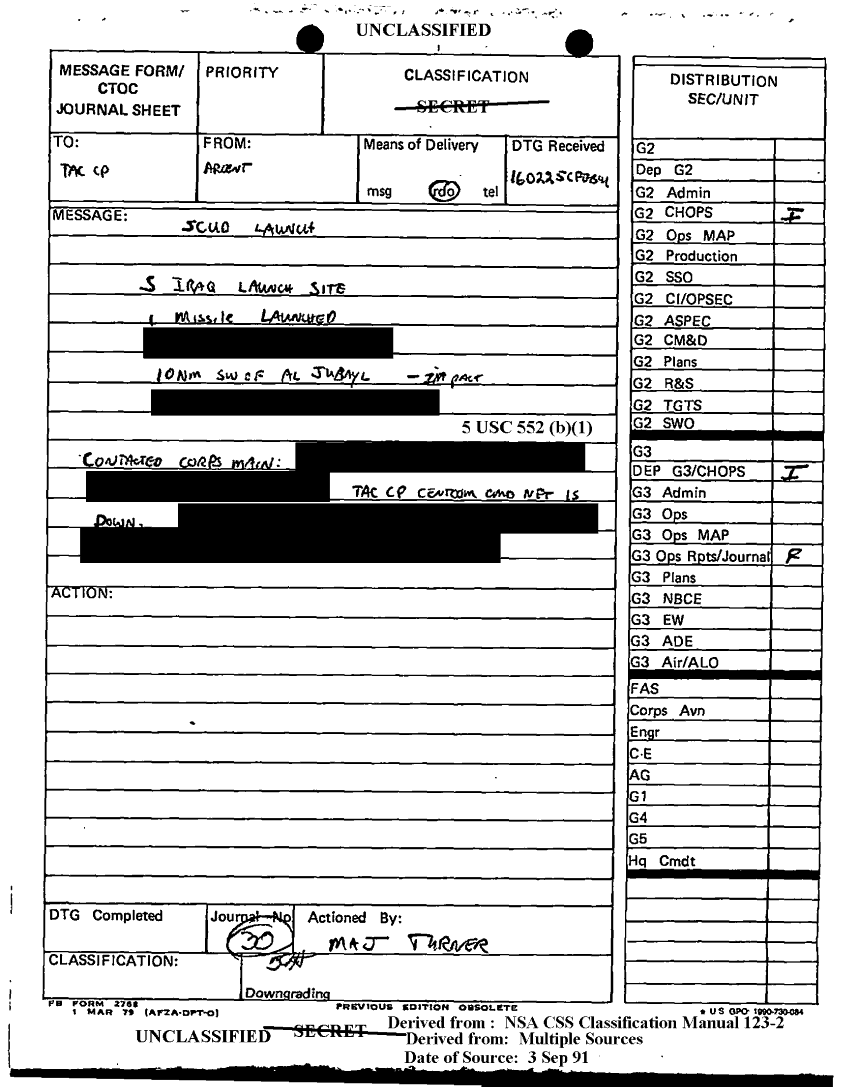 UNCLASSIFIED
MESSAGE FORM/
CTOC
JOURNAL SHEET
PRIORITY
CLASSIFICATION
SECRET
TO:
TAC CP
FROM:
ARCENT
Means of Delivery
msg rdo tel
DTG Received
MESSAGE:
SCUD LAUNCH
S IRAQ LAUNCH SITE
1 MissiLe LAUNCHED
10Nm SW OF AL JUBAYL - IMPACT
5 USC 552 (b)(1)
CONTACTED CORPS MAIN:
TAC CP CENTCOM CMD NET IS
DOWN.
ACTION:
DTG Completed
Journal No
30
Actioned By:
MAJ TURNER
CLASSIFICATION:
Downgrading
DISTRIBUTION
SEC/UNIT
G2
Dep G2
G2 Admin
G2 CHOPS I
G2 Ops MAP
G2 Production
G2 SSO
G2 CI/OPSEC
G2 ASPEC
G2 CM&D
G2 Plans
G2 R&S
G2 TGTS
G2 SWO
G3
DEP G3/CHOPS I
G3 Admin
G3 Ops
G3 Ops MAP
G3 Ops Rpts/Journal R
G3 Plans
G3 NBCE
G3 EW
G3 ADE
G3 Air/ALO
FAS
Corps Avn
Engr
C-E
AG
G1
G4
G5
Hq Cmdt
FB FORM 2768
1 MAR 79 (AFZA-DPT-O)
PREVIOUS EDITION OBSOLETE
* US GPO: 1990-730-084
UNCLASSIFIED SECRET
Derived from : NSA CSS Classification Manual 123-2
Derived from: Multiple Sources
Date of Source: 3 Sep 91